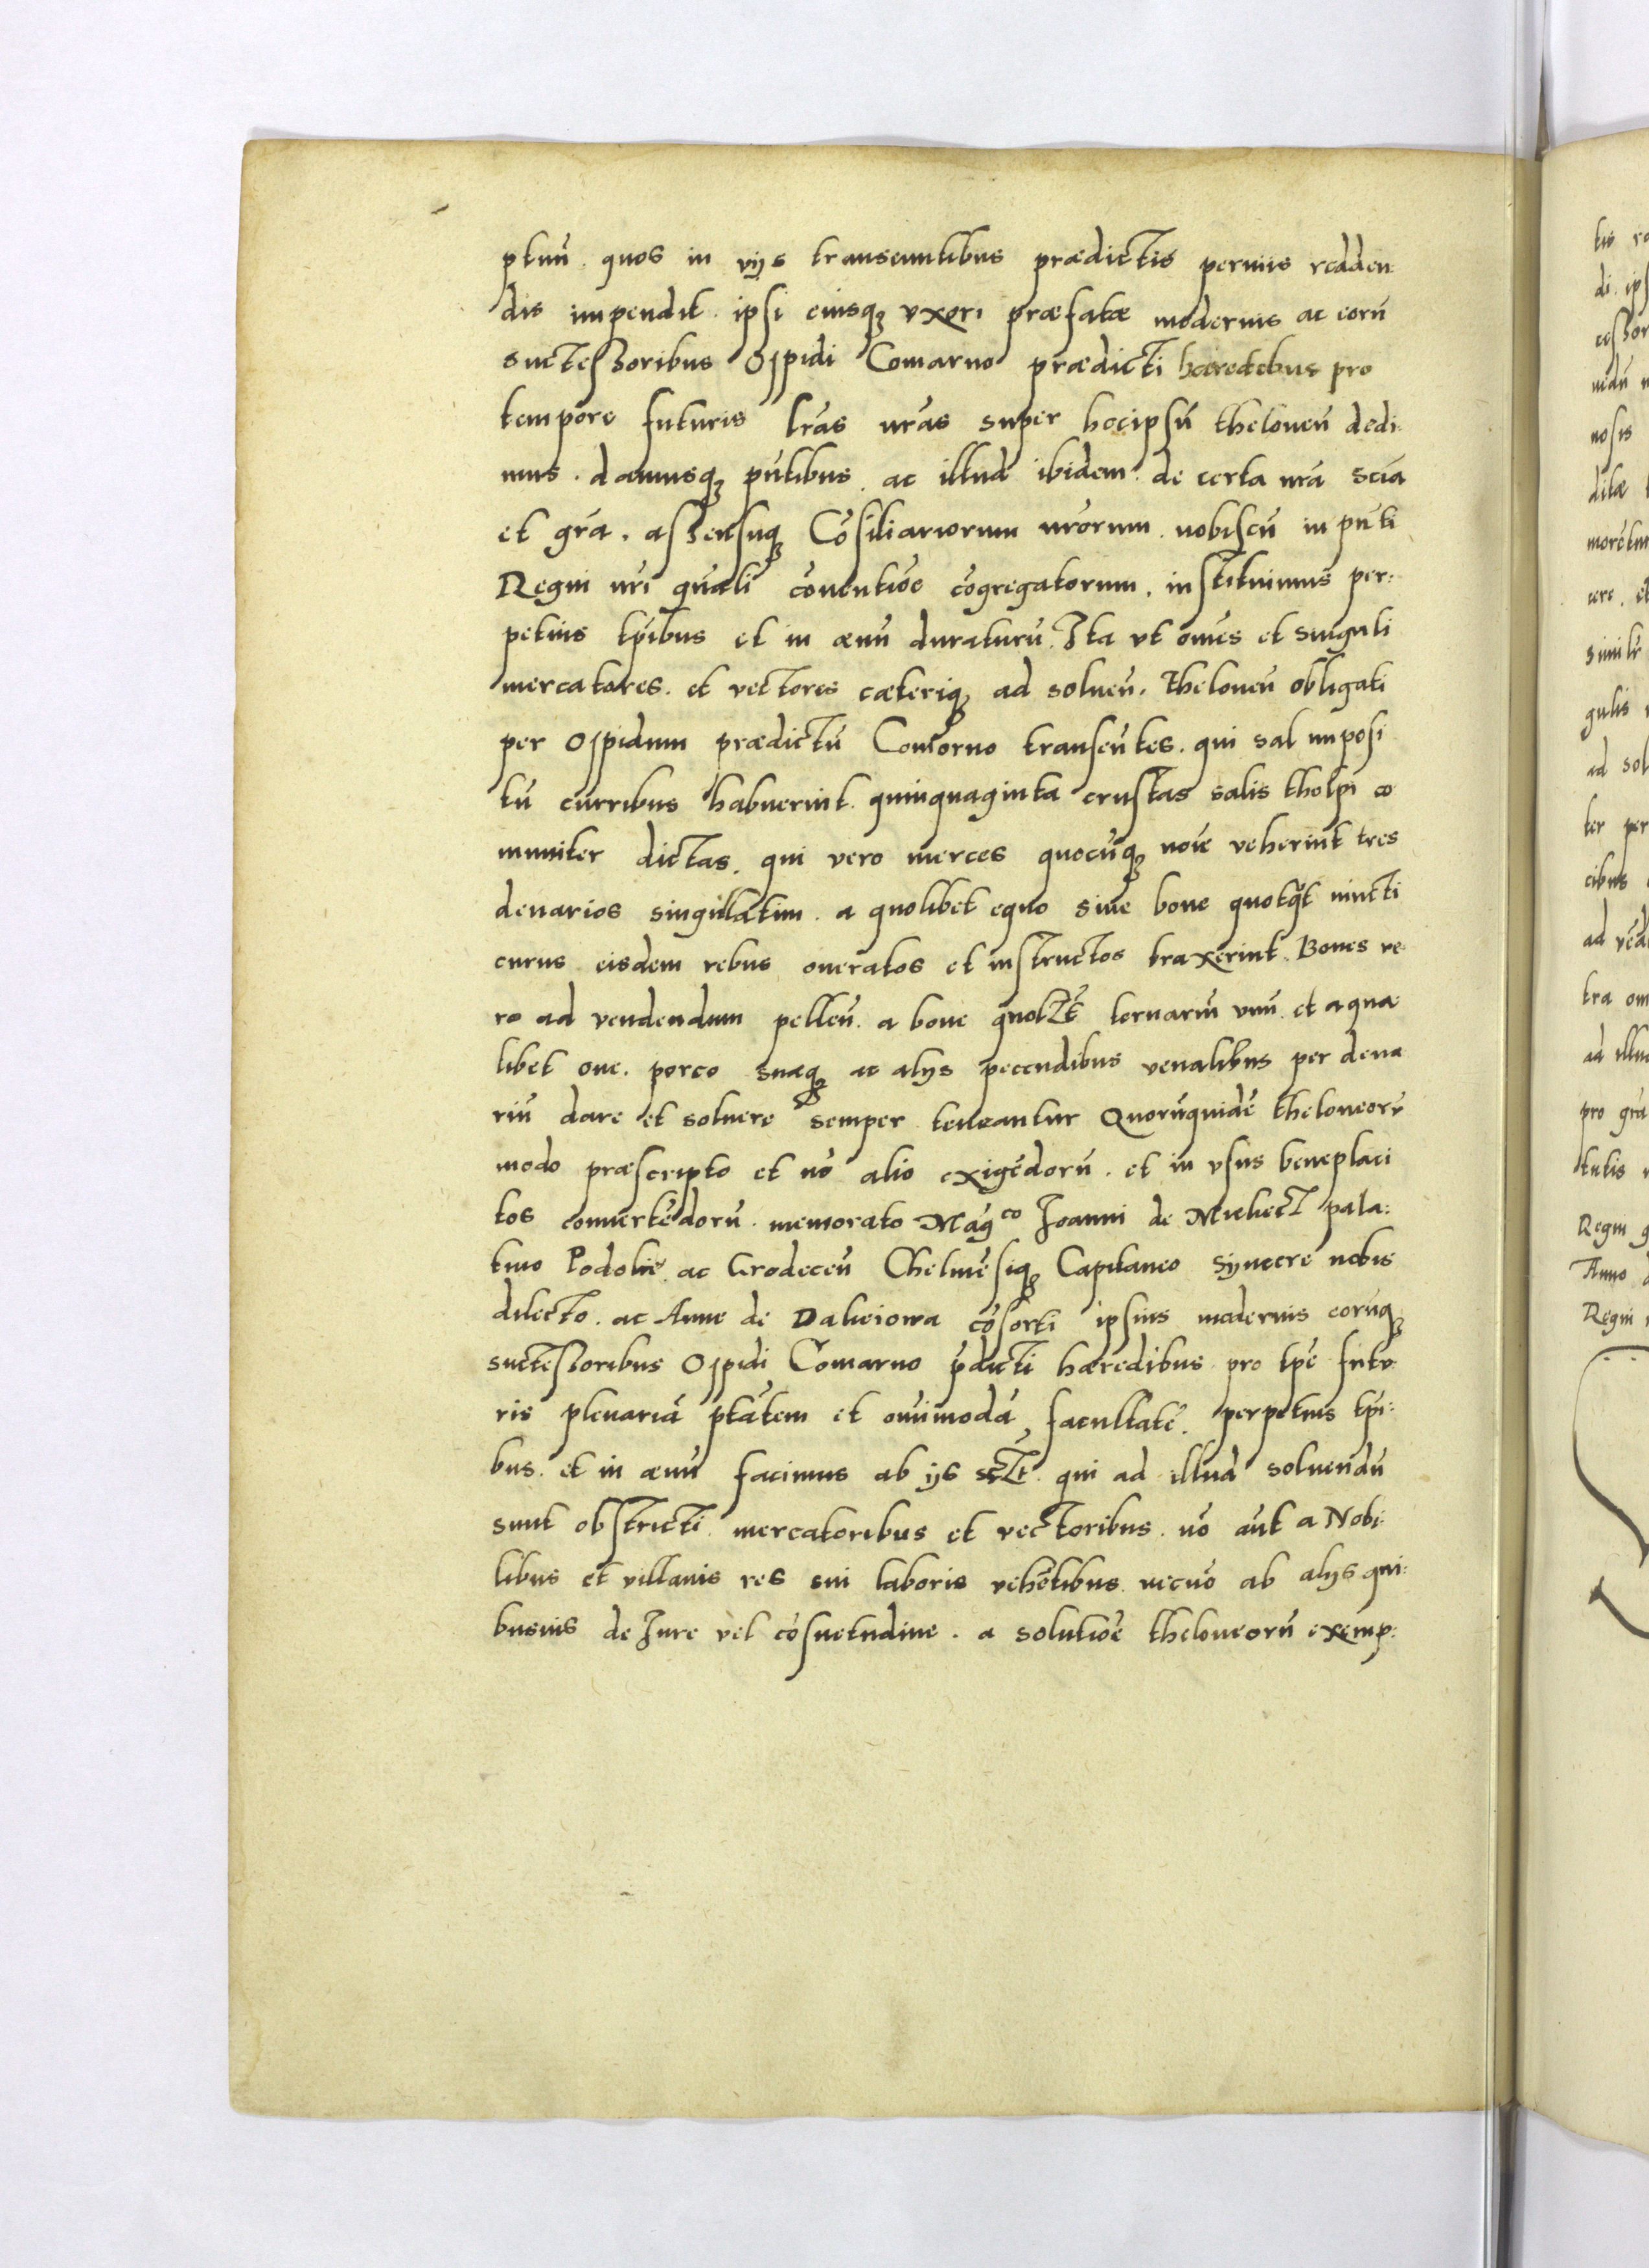 ptuū quos in vijs transeuntibus prædictis peruiis redden:
dis impendit. ipsi eiusq; vxori præfatæ modernis ac eorū
successoribus Oppidi Comarno prædicti hæredebus pro
tempore futuris lrãs nrãs super hocipsū theloneū dedi
mus. damusq; pñtibus. ac illud ibidem. de certa nrã sciã
et grã. assensuq; Cõsiliariorum nrõrum nobiscū in pñti
Regni nrĩ gñali cõuentiõe cõgregatorum. instituimus per:
petuis tpĩbus et in æuū duraturū. Ita vt omēs et singuli
mercatores. et vectores cæteriq; ad soluen̄. theloneū obligati
per Oppidum prædictū Comorno transeūtes. qui sal imposi
tū curribus habuerint quinquaginta crustas salis tholpi co
muniter dictas. qui vero merces quocūq; noīe veherint tres
denarios singillatim. a quolibet equo siue boue quotqt iuncti
currus eisdem rebus oneratos et instructos traxerint. Boues ve
ro ad vendendum pellen̄. a boue quolzt ternariū vnū et a qua
libet oue. porco suaq; ac alijs pecudibus venalibus per dena
riū dare et soluere semper teneantur Quorūquidē theloneorū
modo præscripto et nõ alio exigēdorū. et in vsus beneplaci
tos conuertēdorū. memorato Mag͠co Joanni de pala:
tino Podoliē ac Grodeceñ Chelmēsiq; Capitaneo syncere nobis
dilecto. ac Anne de Daleiowa cõsorti ipsius modernis eorūq;
successoribus Oppidi Comarno p̄dicti hæredibus pro tpē futu
ris plenariā ptãtem et omīmodā facultatē. perpetuis tpĩ:
bus. et in æuū facimus ab ijs sclt. qui ad illud soluendū
sunt obstricti mercatoribus et vectoribus. nõ aūt a Nobi:
libus et villanis res sui laboris vehētibus. necnõ ab alijs qui:
busuis de Jure vel cõsuetudine. a solutiõe theloneorū exemp: